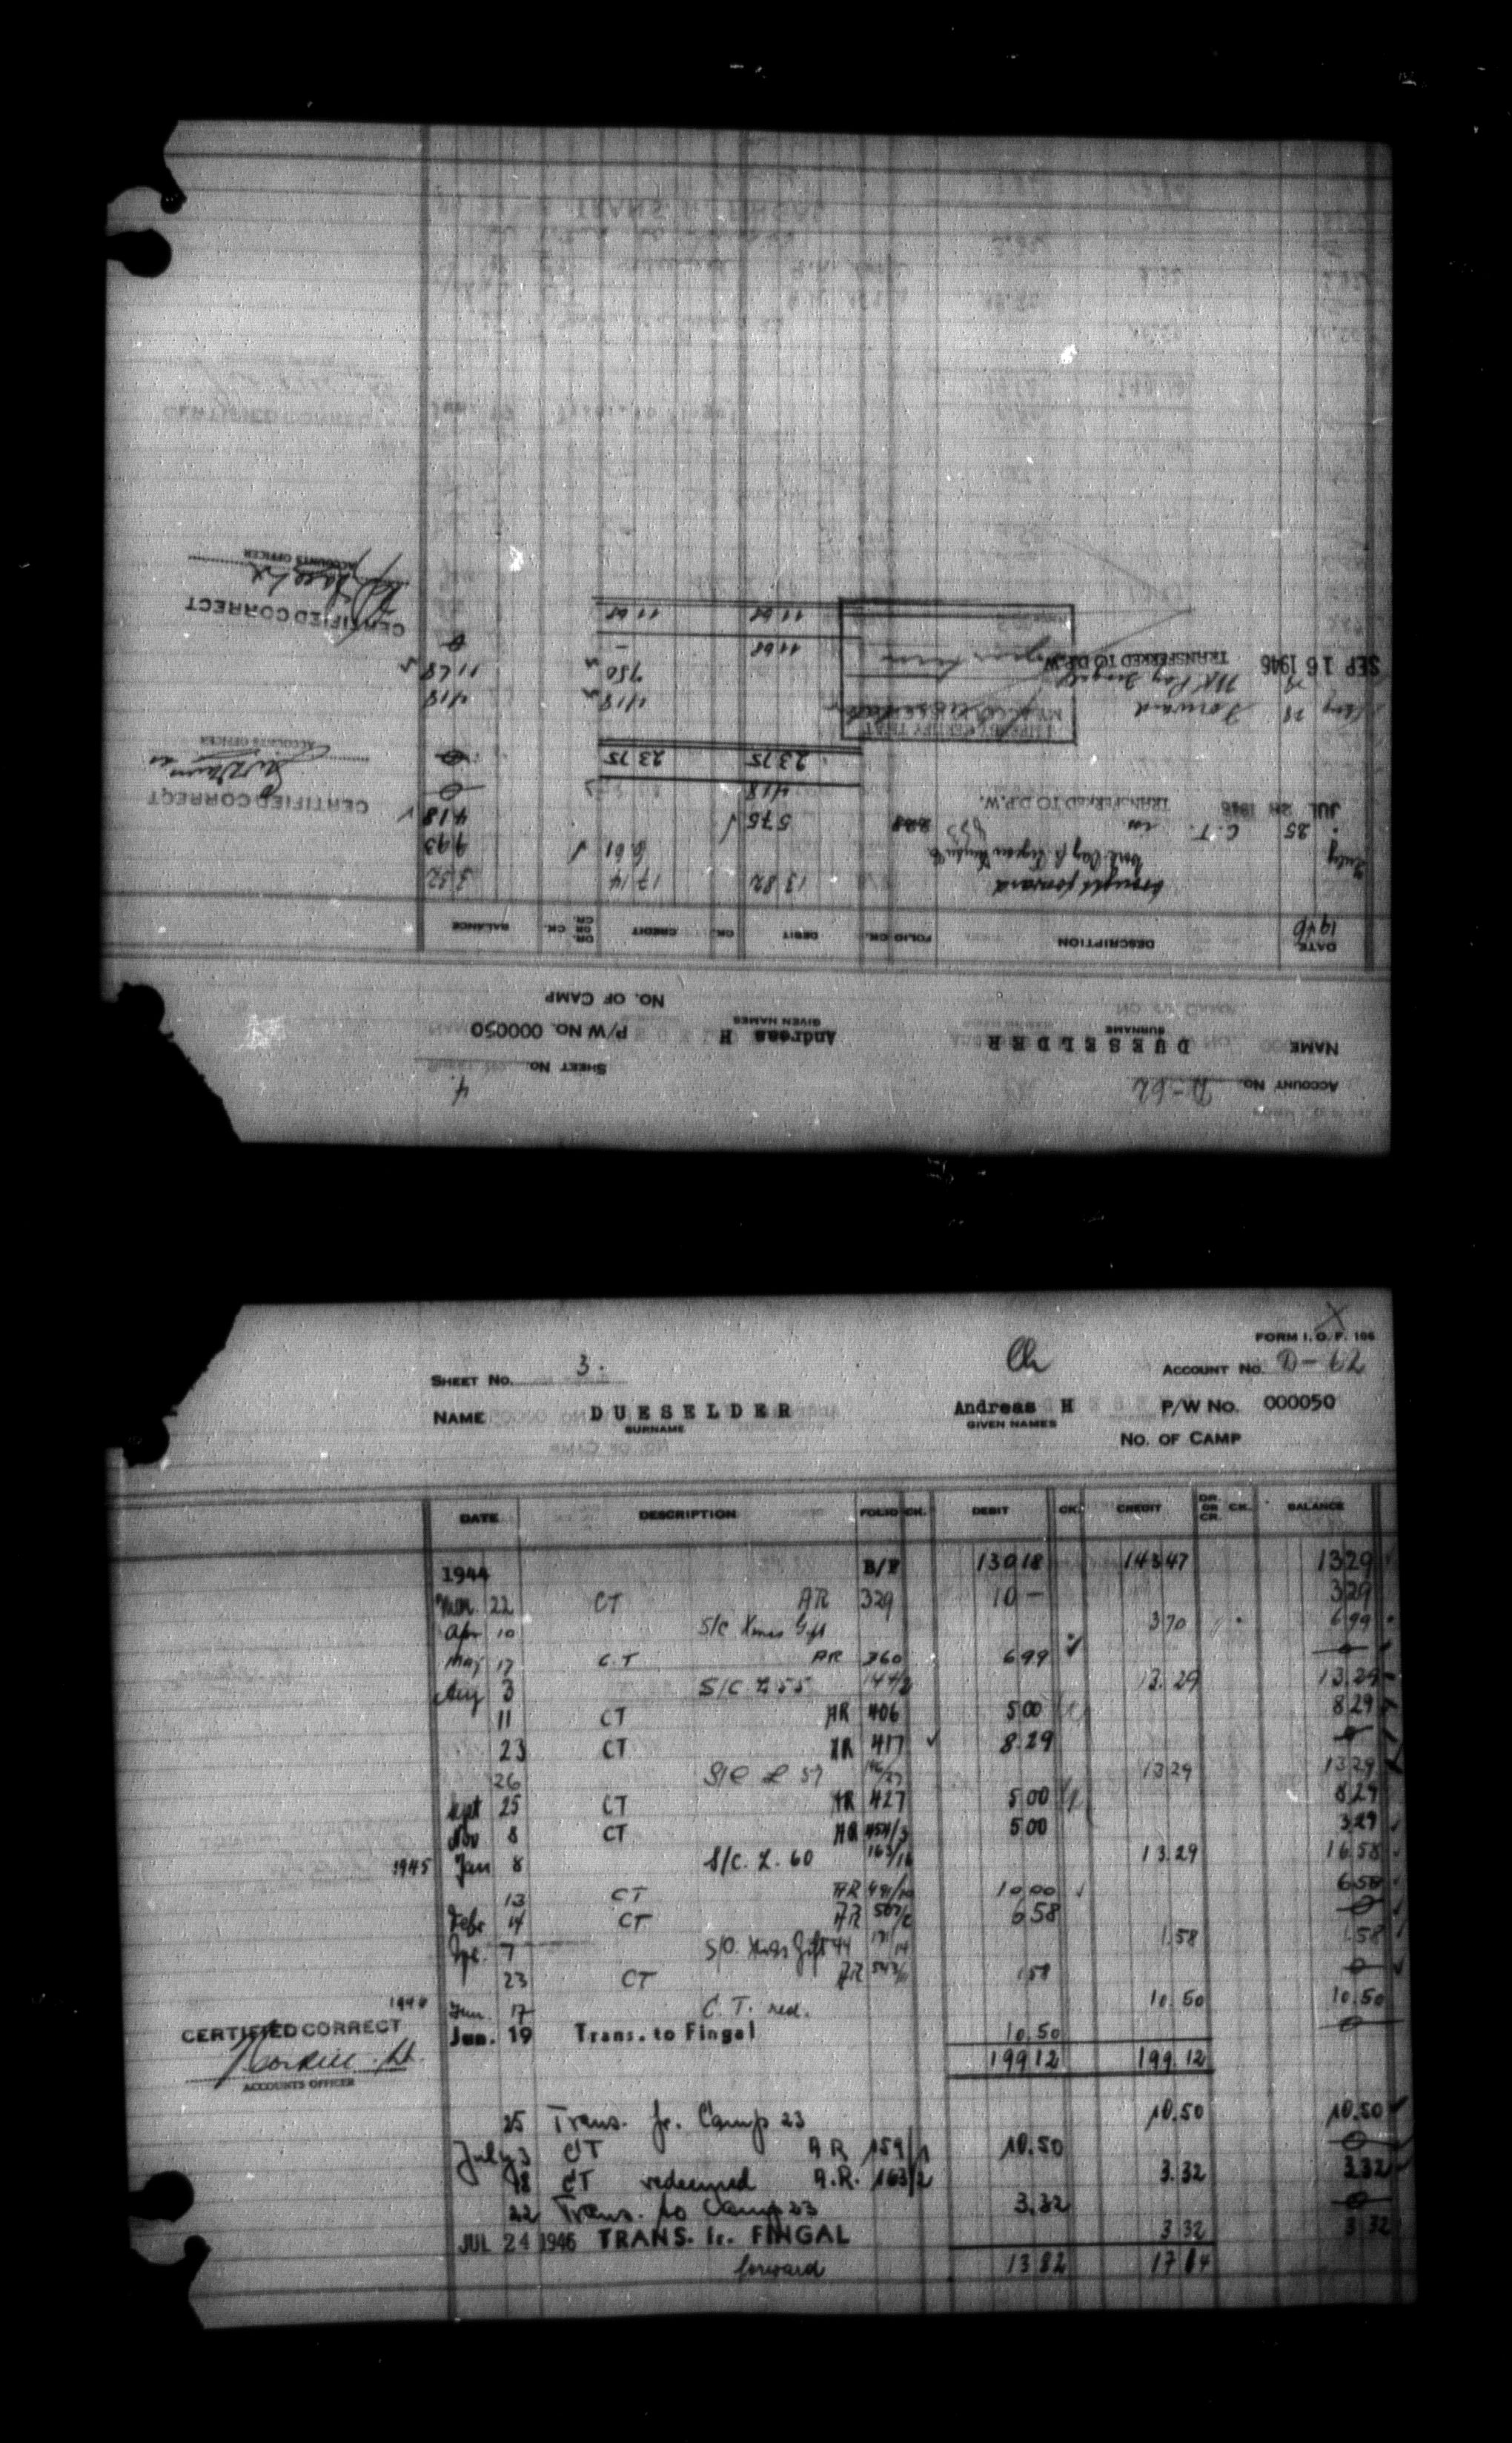 ACCOUNT No. D-62
SHEET No. 4.
NAME DUESELDER Andreas H P/W No. 000050
SURNAME GIVEN NAMES
NO. OF CAMP
DATE DESCRIPTION FOLIO CK. DEBIT CK. CREDIT DR. OR CR. CK. BALANCE
1946
brought forward 13 82 17 14 3 32
July 6 61 9 93
25 C.T. 5 75 4 18
JUL 26 1946 TRANSFERRED TO D.P.W. 4 18
23 75 23 75
CERTIFIED CORRECT
ACCOUNTS OFFICER
Aug Forward 4 18 4 18
7 50 11 68
SEP 16 1946 TRANSFERRED TO D.P.W. 11 68 –
11 68 11 68
I HEREBY CERTIFY THAT
CERTIFIED CORRECT
ACCOUNTS OFFICER
FORM I. O. P. 106
SHEET No. 3. ACCOUNT No. D-62
NAME DUESELDER Andreas H P/W No. 000050
SURNAME GIVEN NAMES
NO. OF CAMP
DATE DESCRIPTION FOLIO CK. DEBIT CK. CREDIT DR. OR CR. CK. BALANCE
1944 B/F 130 18 143 47 13 29
Mar. 22 CT AR 329 10 – 3 29
Apr 10 S/C Xmas Gift 3 70 6 99
May 17 C.T AR 360 6 99 0
Aug 3 S/C L 55 13.29 13.29
11 CT AR 406 5 00 8 29
23 CT AR 417 8.29 0
26 S/C L 57 13 29 13 29
Sept 25 CT AR 427 5 00 8 29
Nov 8 CT AR 454/3 5 00 3 29
1945 Jan 8 S/C. L. 60 163/16 13.29 16.58
13 CT AR 10 00 6 58
Febr 14 CT AR 6 58 0
Apr. 7 S/C. Xmas Gift 44 171/14 1.58 1 58
23 CT AR 1 58 0
1946 Jun. 17 C.T. red. 10.50 10.50
Jun. 19 Trans. to Fingal 10.50 0
199 12 199.12
CERTIFIED CORRECT
ACCOUNTS OFFICER
25 Trans. fr. Camp 23 10.50 10.50
July 3 CT AR 159/1 10.50 0
18 CT redeemed A.R. 163/2 3.32 3 32
22 Trans. to Camp 23 3.32 0
JUL 24 1946 TRANS. fr. FINGAL 3 32 3 32
forward 13 82 17 14